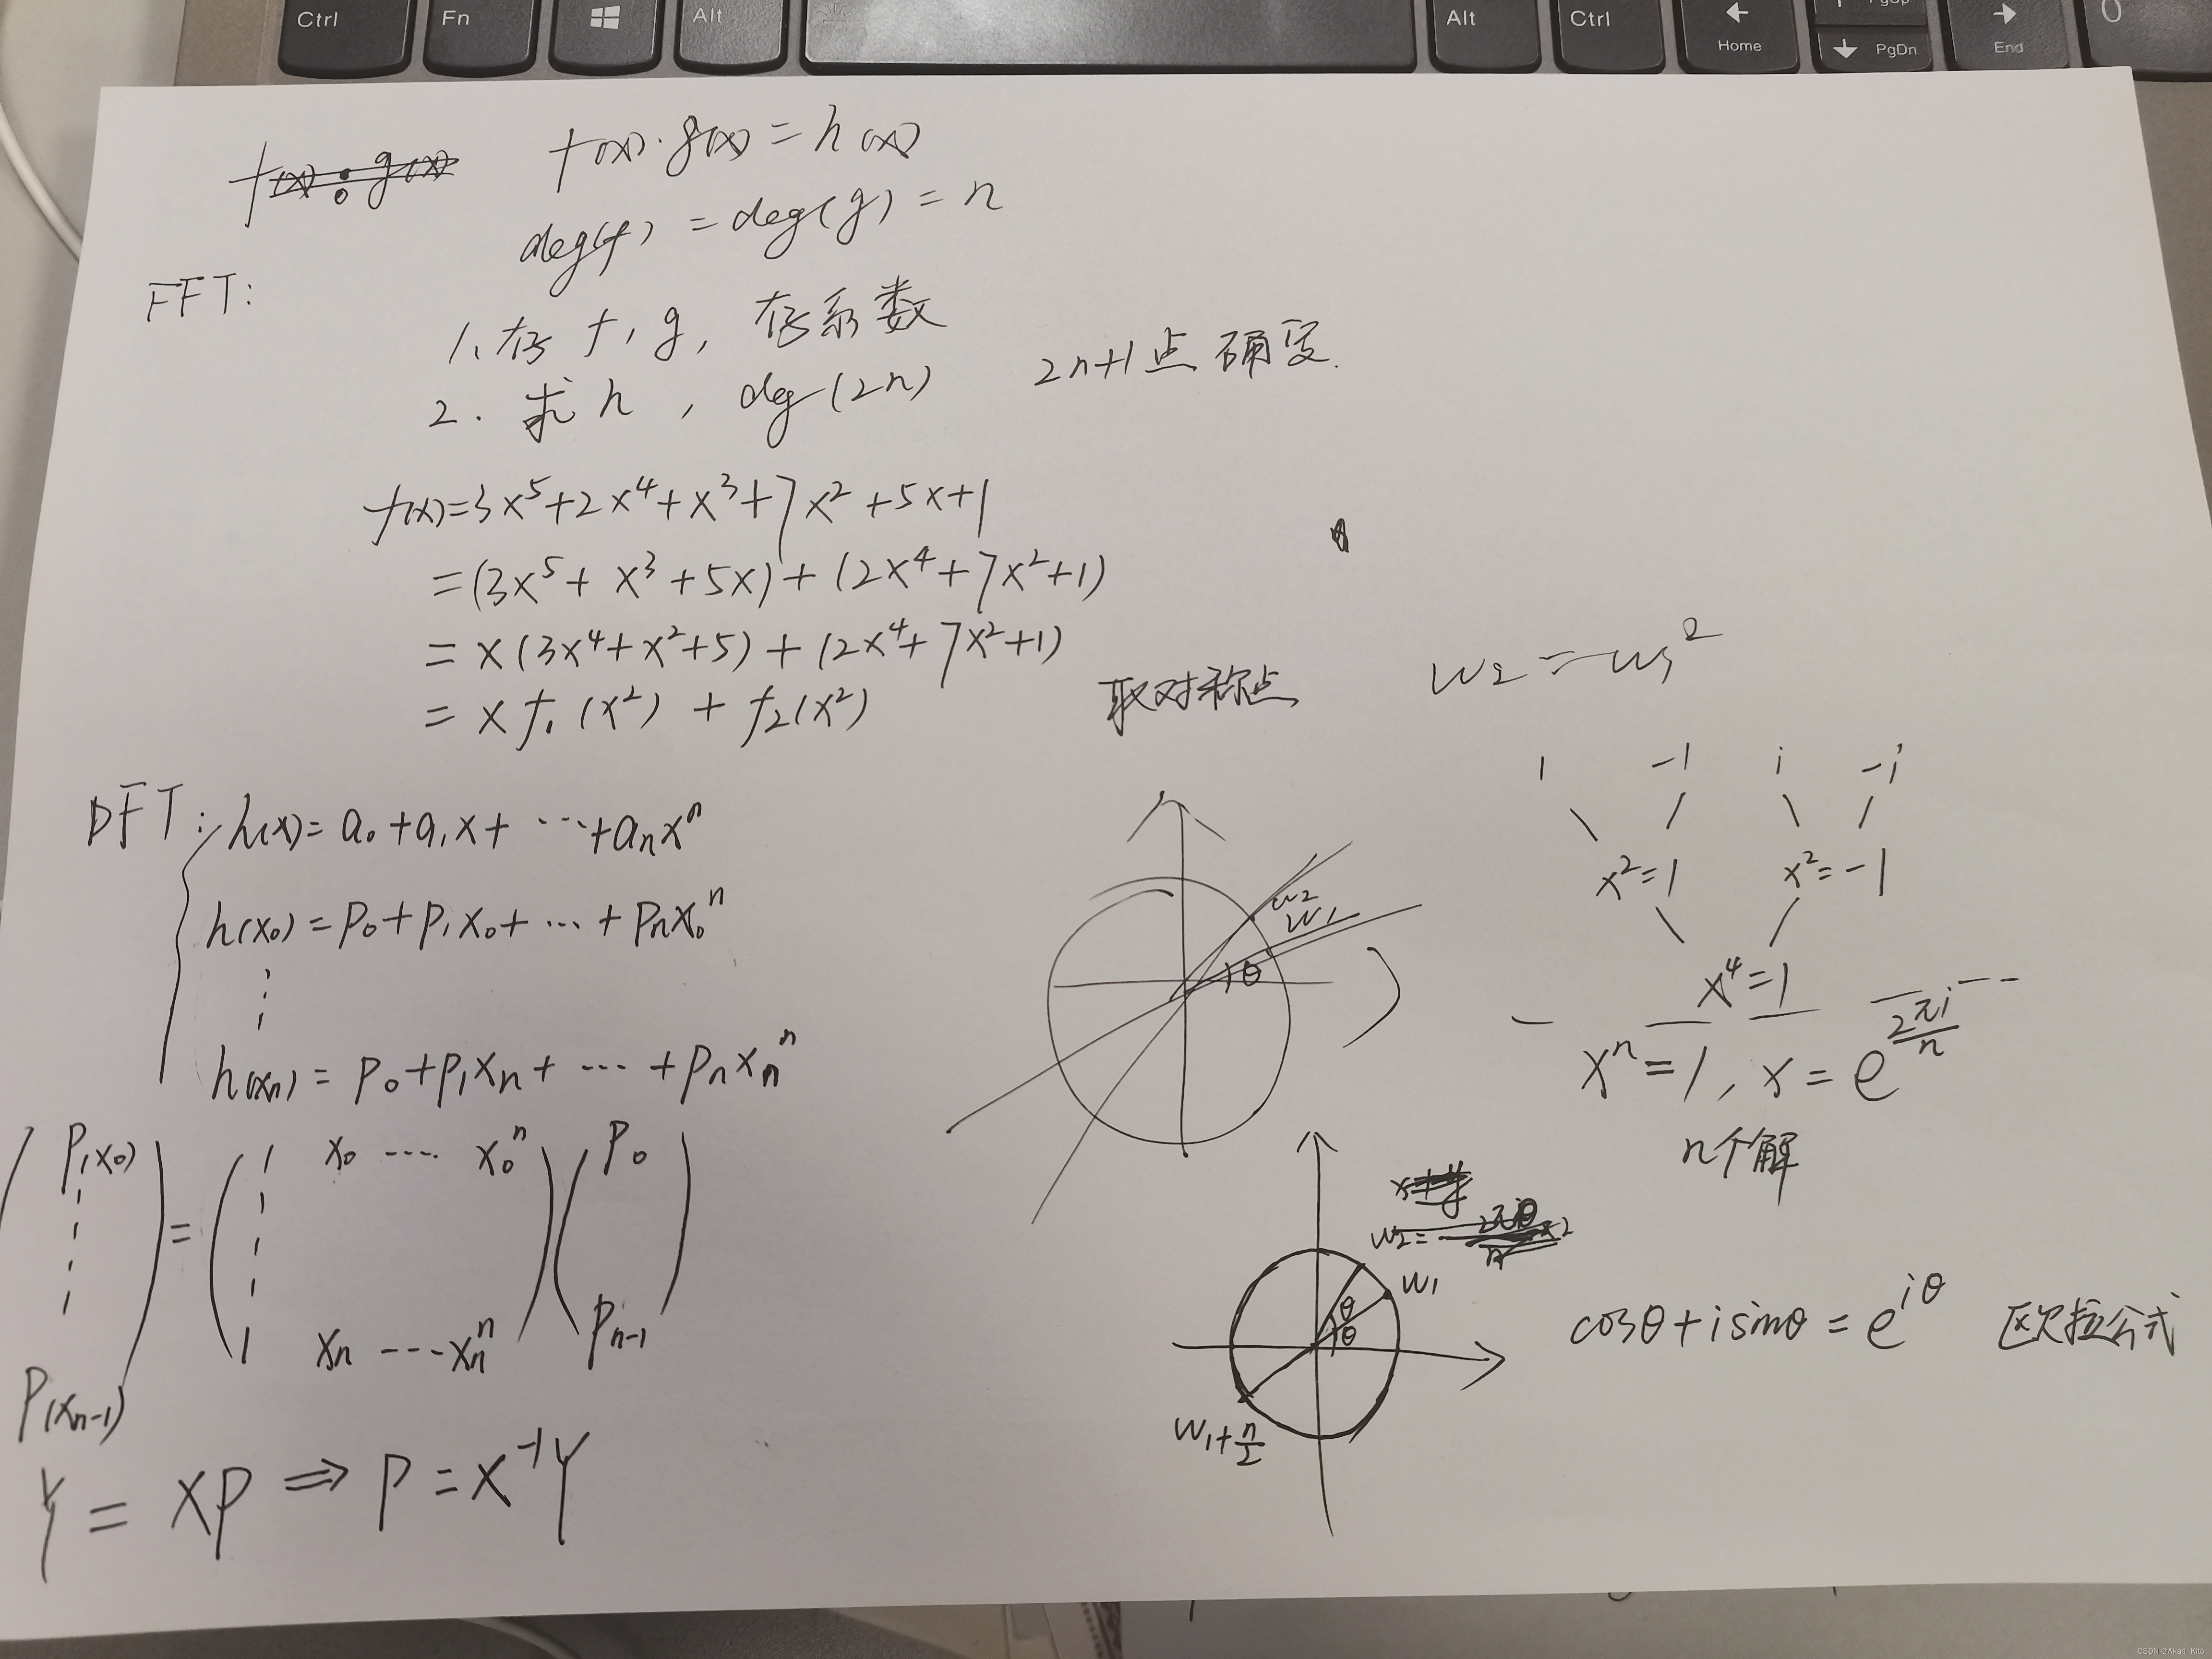 Ctrl Fn Alt Alt Ctrl Home PgDn End
f(x) · g(x) = h(x)
deg(f) = deg(g) = n
FFT:
1、存 f, g, 存系数
2. 求 h , deg(2n) 2n+1点确定.
f(x)=3x⁵+2x⁴+x³+7x²+5x+1
=(3x⁵+ x³+5x)+(2x⁴+7x²+1)
= x(3x⁴+x²+5)+(2x⁴+7x²+1)
= x f₁(x²) + f₂(x²)
取对称点
w₂ = w₁²
1 -1 i -i
x²=1 x²=-1
x⁴=1
xⁿ=1, x = e^(2πi/n)
n个解
w₂
w₁
θ
DFT: h(x)= a₀+a₁x+ ⋯ +aₙxⁿ
h(x₀) = p₀+p₁x₀+ ⋯ + pₙx₀ⁿ
⋮
h(xₙ) = p₀+p₁xₙ+ ⋯ +pₙxₙⁿ
(P(x₀) ⋮ P(xₙ₋₁)) = (1 x₀ ⋯ x₀ⁿ ⋮ 1 xₙ ⋯ xₙⁿ)(P₀ Pₙ₋₁)
Y = XP ⇒ P = X⁻¹Y
w₂=
w₁
θ
θ
w₁₊ₙ/₂
cosθ+isinθ = e^(iθ) 欧拉公式
CSDN @Akari_Kitō